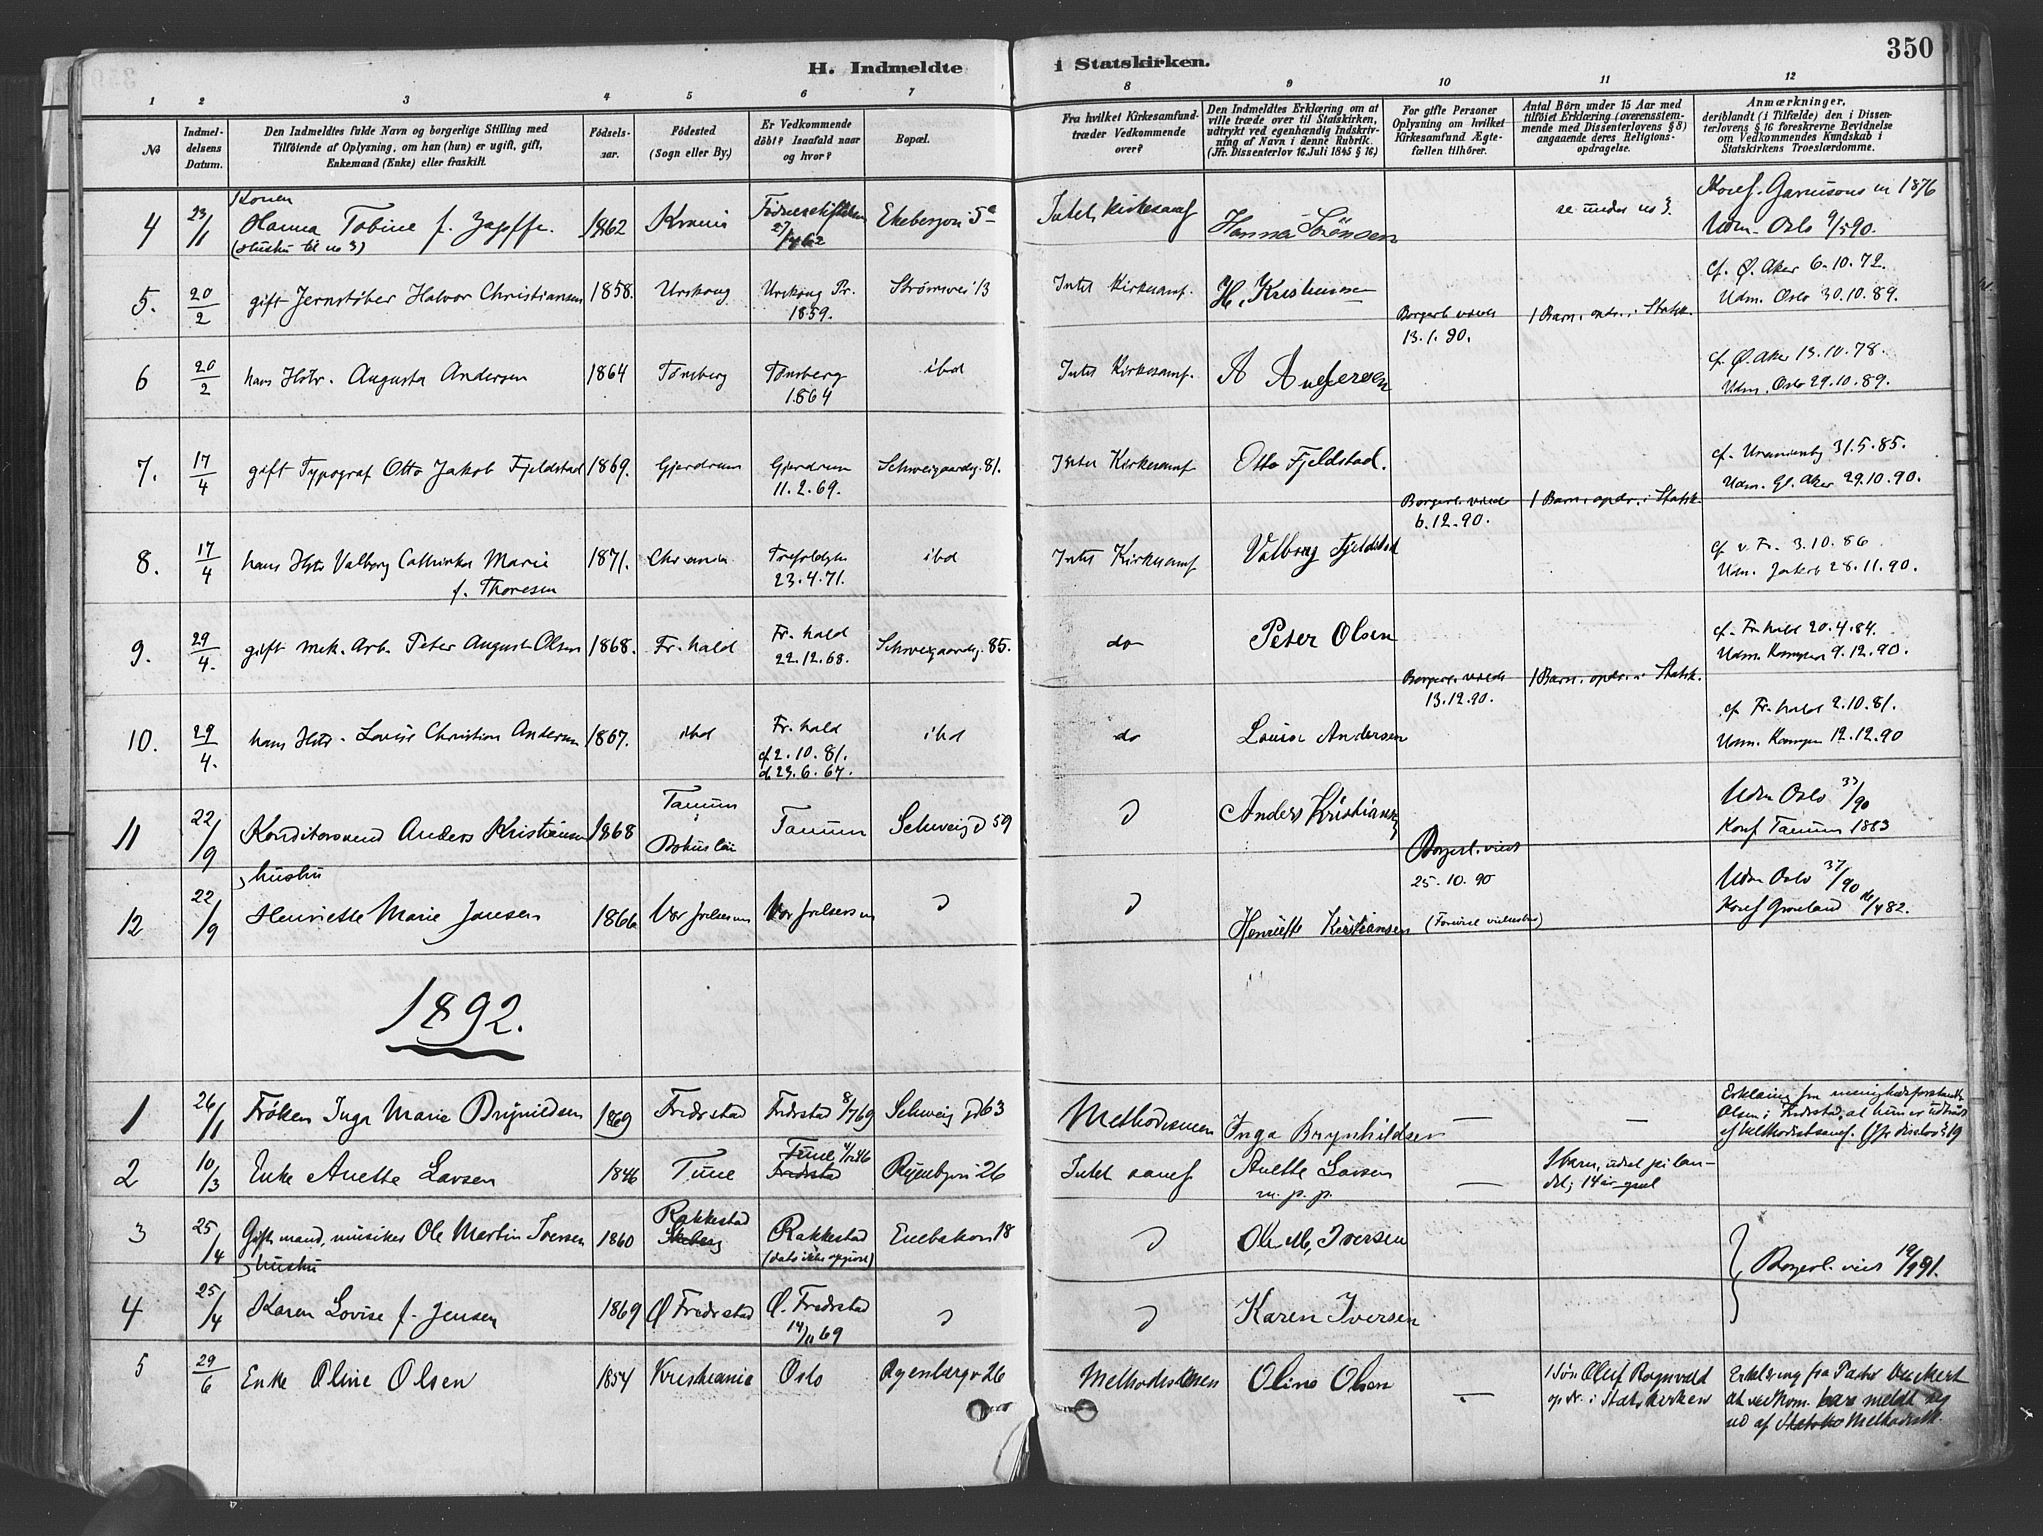 350
H. Indmeldte i Statskirken.
1 2 3 4 5 6 7 8 9 10 11 12
No
Indmel-
delsens
Datum.
Den Indmeldtes fulde Navn og borgerlige Stilling med
Tilføiende af Oplysning, om han (hun) er ugift, gift,
Enkemand (Enke) eller fraskilt.
Fødsels-
aar.
Fødested
(Sogn eller By.)
Er Vedkommende
døbt? Isaafald naar
og hvor?
Bopæl.
Fra hvilket Kirkesamfund-
træder Vedkommende
over?
Den Indmeldtes Erklæring om at
ville træde over til Statskirken,
udtrykt ved egenhændig Indskriv-
ning af Navn i denne Rubrik.
(Jfr. Dissenterlov 16 Juli 1845 § 16)
For gifte Personer
Oplysning om hvilket
Kirkesamfund Ægte-
fællen tilhører.
Antal Børn under 15 Aar med
tilføiet Erklæring (overensstem-
mende med Dissenterlovens § 8)
angaaende deres Religions-
opdragelse.
Anmærkninger,
deriblandt (i Tilfælde) den i Dissen-
terlovens § 16 foreskrevne Bevidnelse
om Vedkommendes Kundskab i
Statskirkens Troeslærdomme.
4 23/1 Konen
Hanna Tobine f.
(Hustru til no 3)
1862 Krania Fødselsstiftelsen
Ekebergvn 5
Intet kirkesamf Hanna Sörensen
se under no 3.
Konf. Garnisons m 1876
Udm. Oslo 9/5 90.
5. 20/2 gift Jernstøber Halvor Christiansen 1858. Urskoug Urskoug Pr.
1859.
Strømsvei 13
Intet Kirkesamf. H. Kristiansen
Borgerl. viede
13.1.90.
1 Barn. opdr. i Statsk.
cf. Ø. Aker 6.10.72.
Udm. Oslo 30.10.89.
6 20/2 hans Hstr. Augusta Andersen 1864 Tønsberg Tønsberg
1864
ibd
Intet Kirkesamf. A Andersen
cf. Ø. Aker 13.10.78.
Udm. Oslo 29.10.89.
7. 17/4 gift Typograf Otto Jakob Fjeldstad 1869. Gjerdrum Gjerdrum
11.2.69.
Schweigaardsg. 81.
Intet Kirkesamf Otto Fjeldstad.
Borgerl. viede
6.12.90.
1 Barn. opdr. i Statsk.
cf. Uranienbg 31.5.85.
Udm. Gl. Aker 29.10.90.
8. 17/4 hans Hstr Valborg Cathinka Marie
f. Thoresen
1871. Chrania Trefoldgh
23.4.71.
ibd
Intet Kirkesamf Valborg Fjeldstad
cf v. Fr. 3.10.86
Udm. Jakob 28.11.90.
9. 29/4. gift mek. Arb. Peter August Olsen 1868. Fr.hald Fr. hald
22.12.68.
Schweigaardsg. 85.
do Peter Olsen
Borgerl. viede
13.12.90.
1 Barn. opdr. i Statsk.
cf. Fr.hald 20.4.84.
Udm. Kampen 9.12.90.
10. 29/4. hans Hstr. Lovise Christine Andersen 1867. ibd Fr. hald
cf 2.10.81.
d 23.6.67.
ibd
do Louise Andersen
cf Fr.hald 2.10.81.
Udm. Kampen 12.12.90
11 22/9 Konditorsvend Anders Kristiansen 1868 Tanum
i
Bohuslän
Tanum Schweigd 59
Anders Kristiansen
Borgerl. viet
25.10.90
Udm Oslo
Konf Tanum 1883
12 22/9 hustru
Henriette Marie Jansen 1866 Vor frelsers m Vor frelsers m
Henriette Kristiansen
Udm Oslo
Konf Grønland
1892.
1 26/1 Frøken Inga Marie Brynildsen 1869 Fredrstad Fredrstad 8/7 69 Schweigd 63
Methodismen Inga Brynhildsen
—
—
Erklæring fra menighedsforstander
Olsen i Fredrstad, at hun er udtraadt
af Methodistsamf.
2 10/3 Enke Anette Larsen 1846 Tune Tune
Fredrstad
Ryenbgvn 26
Intet samf Anette Larsen
m. p. p.
—
1 barn, udsat på lan-
det, 14 år gml
3 25/4 Gift mand, musiker Ole Martin Iversen 1860 Rakkestad
Skeberg
Rakkestad
(dato ikke opgivet)
Enebakvn 18
Ole M, Iversen
Borgerl. viet 19/9 91.
4 25/4 hustru
Karen Lovise f. Jensen 1869 Ø Fredrstad Ø. Fredrstad
14/11 69
Karen Iversen
5 29/6 Enke Oline Olsen 1854 Kristiania Oslo Ryenbergv 26
Methodistmen Oline Olsen
—
1 Søn Oluf Ragnvald
opdr. i Statskirken
Erklæring fra Pastor
at vedkom. har meldt sig
ud af Statski Methodistk.